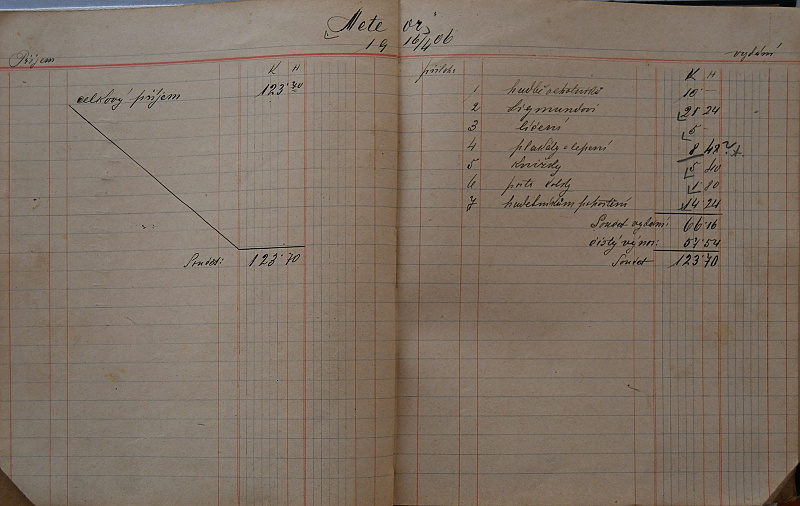 „Meteor"
19 16/4 06
Příjem
K H
celkový příjem 123·70
Součet: 123·70
vydání
příloha K H
1 hudbě 10 -
2 Zigmundovi 21 24
3 líčení 5 -
4 plakáty a lepení 8 48
5 5 40
6 1 80
7 hudebníkům pohoštění 14 24
Součet vydání: 66·16
čistý výnos: 57·54
Součet 123·70